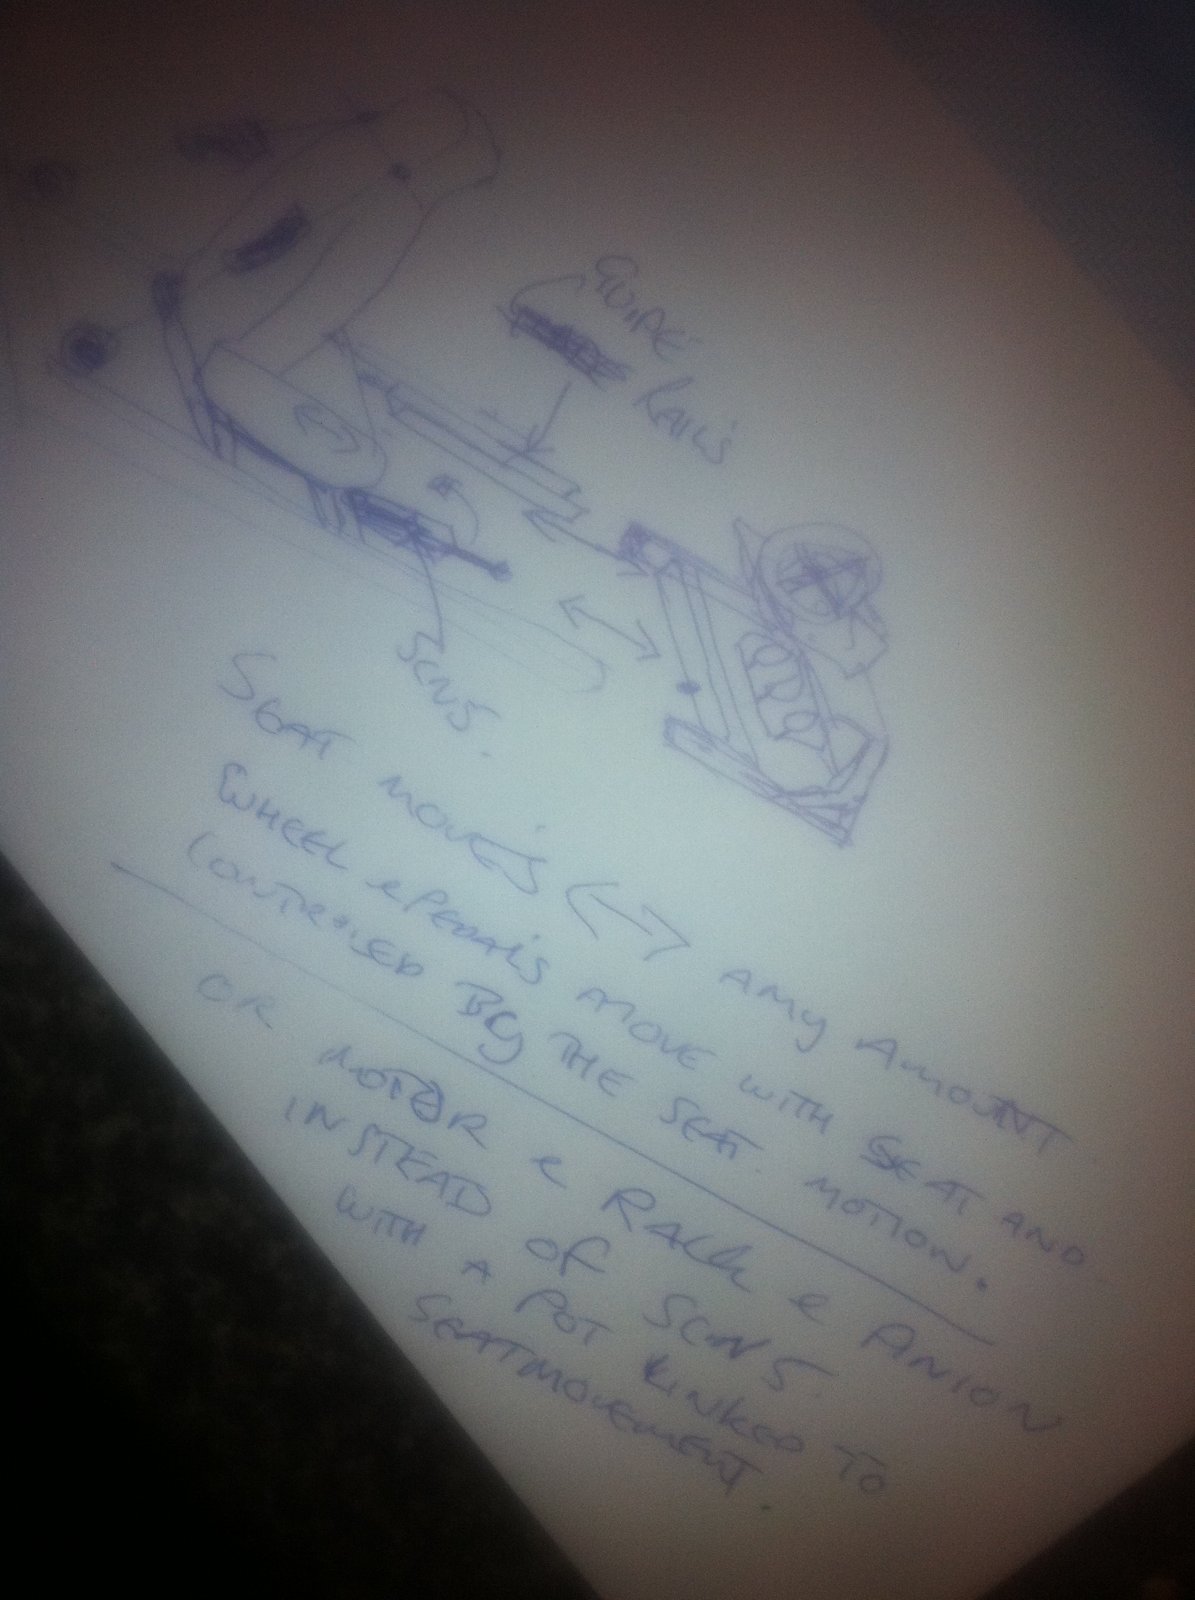 GUIDE
RAIL'S
SCN5.
SEAT MOVE'S <-> AMY AMOUNT.
WHEEL & PEDAL'S MOVE WITH SEAT AND
CONTROLLED BY THE SEAT MOTION.
OR MOTOR & RACK & PINION
INSTEAD OF SCN5.
WITH A POT LINKED TO
SEATMOVEMENT.